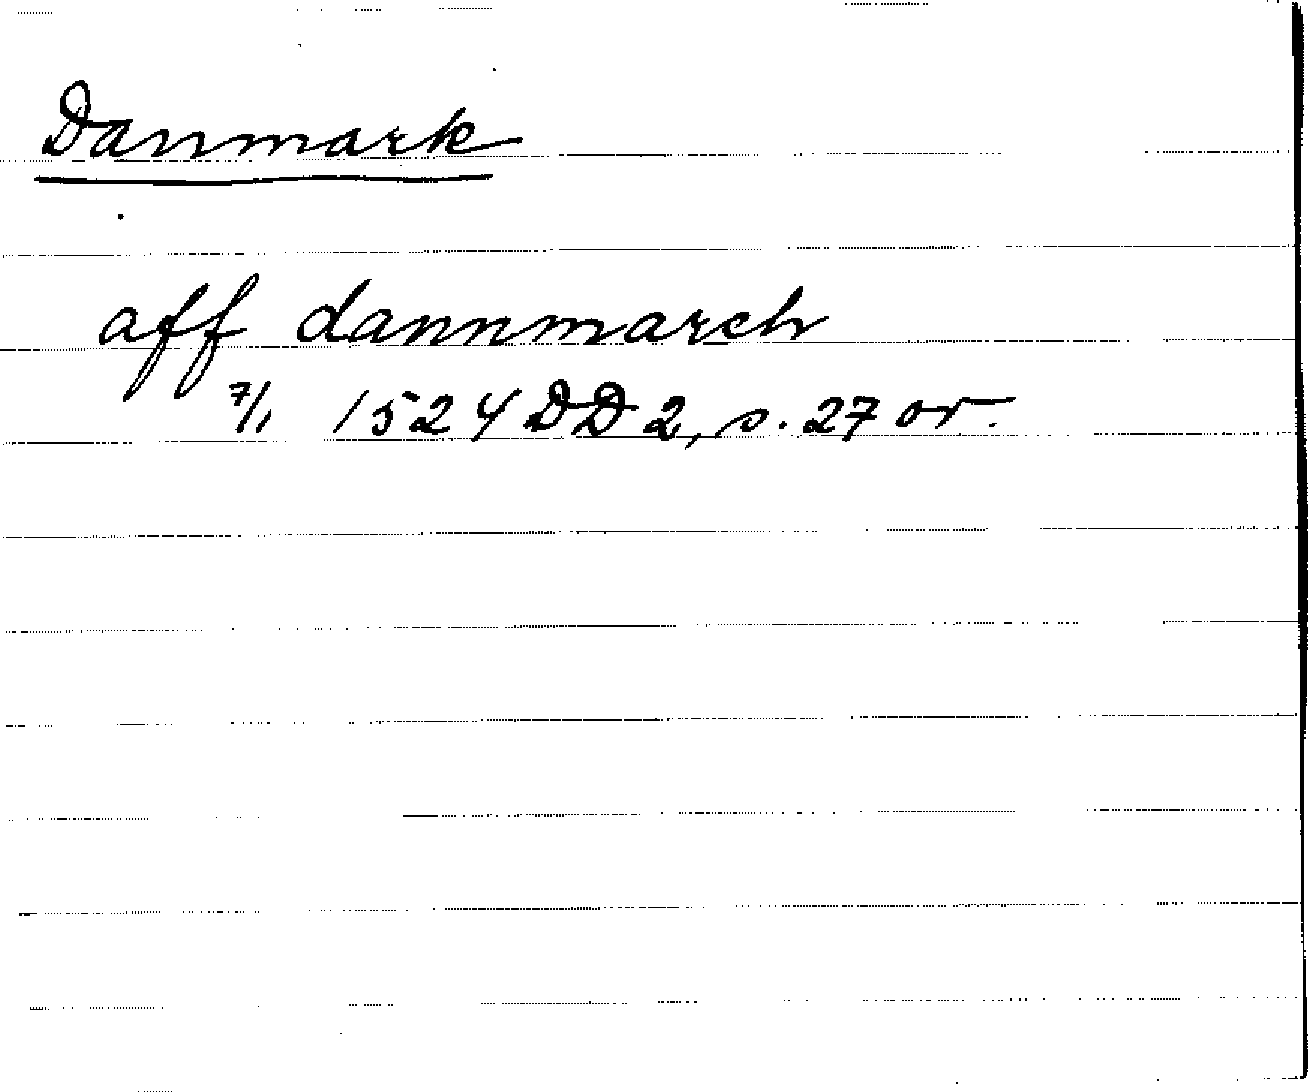 Danmark
aff dannmarch
7/1 1524 DD 2, s. 27 or.